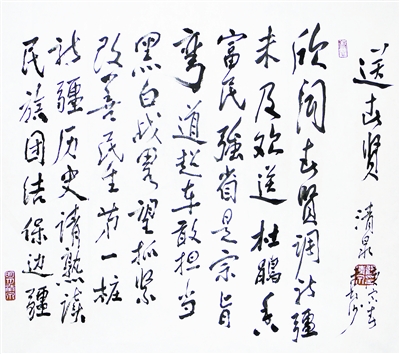 送春贤
欣闻春贤调新疆
未及欢送杜鹃香
富民强省是宗旨
弯道超车敢担当
黑白战略望抓紧
改善民生第一桩
新疆历史请熟读
民族团结保边疆
清泉